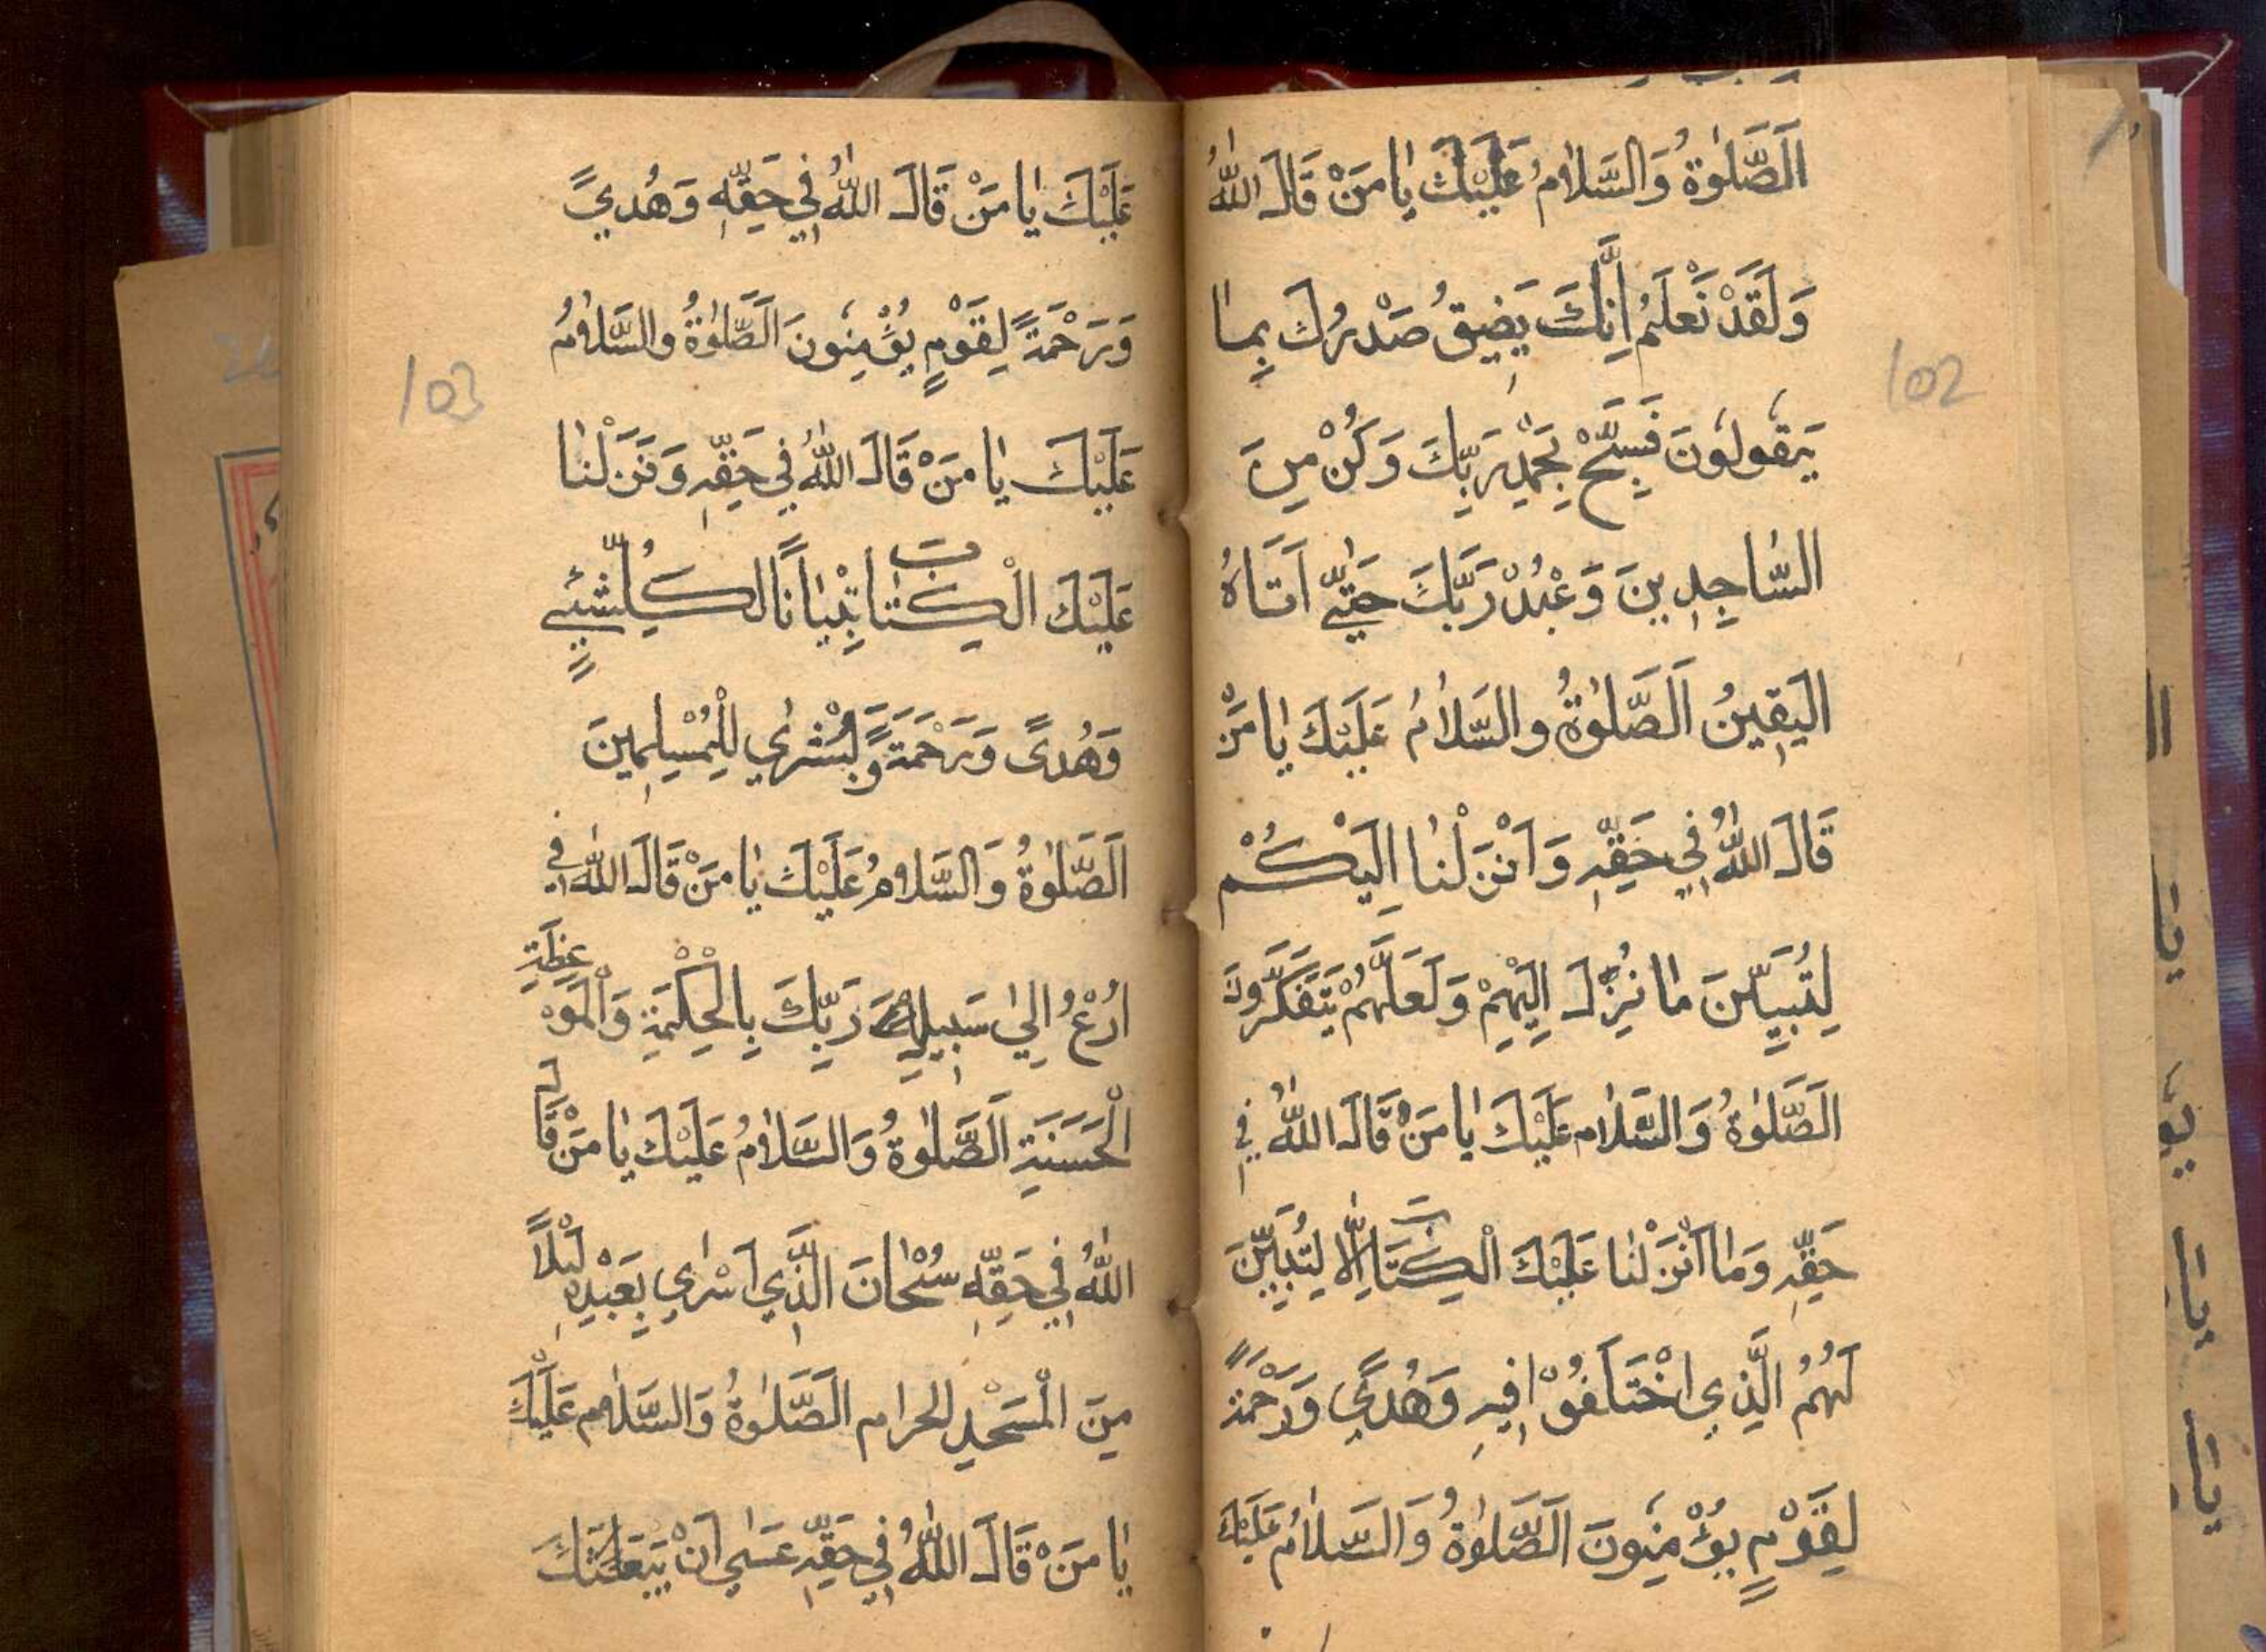 102
اَلصَّلٰوةُ وَالسَّلَامُ عَلَيْكَ يَا مَنْ قَالَ اللّٰهُ
وَلَقَدْ نَعْلَمُ اِنَّكَ يَضِيقُ صَدْرُكَ بِمَا
يَقُولُونَ فَسَبِّحْ بِحَمْدِ رَبِّكَ وَكُنْ مِنَ
السَّاجِدِينَ وَعْبُدْ رَبَّكَ حَتّٰي اَتَاهُ
اليَقِينُ اَلصَّلٰوةُ والسَّلَامُ عَلَيْكَ يَا مَنْ
قَالَ اللّٰهُ فِي حَقِّهِ وَاَنْزَلْنَا اِلَيْكُمْ
لِتُبَيِّنَ مَا نُزِّلَ اِلَيْهِمْ وَلَعَلَّهُمْ يَتَفَكَّرُونَ
اَلصَّلٰوةُ وَالسَّلَام عَلَيْكَ يَا مَنْ قَالَ اللّٰهُ فِي
حَقِّهِ وَمَا اَنْزَلْنَا عَلَيْكَ الْكِتَابَ اِلَّا لِتُبَيِّنَ
لَهُمُ الَّذِي اخْتَلَفُوْا فِيهِ وَهُدًي وَرَحْمَةً
لِقَوْمٍ يُؤْمِنُونَ اَلصَّلٰوةُ وَالسَّلَامُ عَلَيْكَ
103
عَلَيْكَ يَا مَنْ قَالَ اللّٰهُ فِي حَقِّهِ وَهُدًي
وَرَحْمَةً لِقَوْمٍ يُؤْمِنُونَ اَلصَّلٰوةُ والسَّلَامُ
عَلَيْكَ يَا مَنْ قَالَ اللّٰهُ فِي حَقِّهِ وَنَزَلْنَا
عَلَيْكَ الْكِتَابَ تِبْيَانًا لِكُلِّ شَيْئٍ
وَهُدًى وَرَحْمَةً وَبُشْرٰي لِلْمُسْلِمِينَ
اَلصَّلٰوةُ وَالسَّلَامُ عَلَيْكَ يَا مَنْ قَالَ اللّٰهُ فِي
اُدْعُ اِلٰي سَبِيلِ رَبِّكَ بِالْحِكْمَةِ وَالْمَوْعِظَةِ
الْحَسَنَةِ اَلصَّلٰوةُ وَالسَّلَامُ عَلَيْكَ يَا مَنْ قَالَ
اللّٰهُ فِي حَقِّهِ سُبْحَانَ الَّذِي اَسْرٰي بِعَبْدِهِ لَيْلًا
مِنَ الْمَسْجِدِ الحرام اَلصَّلٰوةُ وَالسَّلَام عَلَيْكَ
يَا مَنْ قَالَ اللّٰهُ فِي حَقِّهِ عَسٰي اَنْ يَبْعَثَكَ